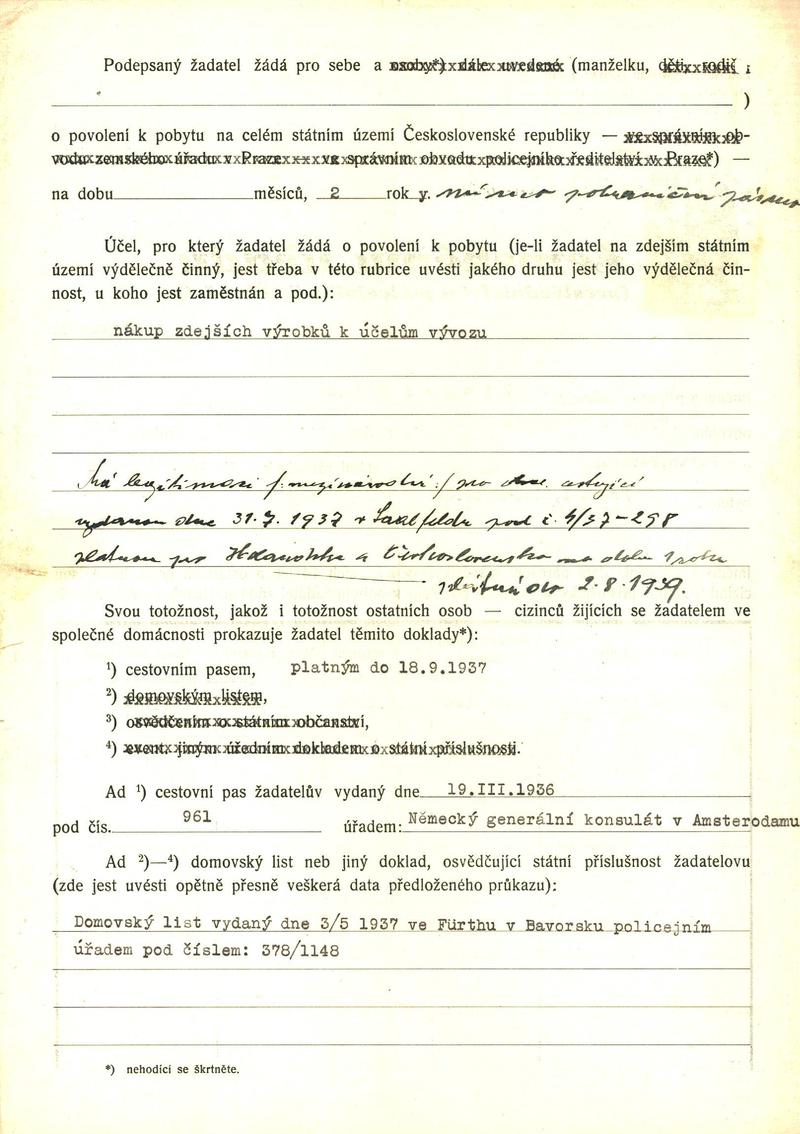 Podepsaný žadatel žádá pro sebe a osoby*) dále uvedené (manželku, děti, rodiče
)
o povolení k pobytu na celém státním území Československé republiky — ve správním ob-
vodu zemského úřadu v Praze — ve správním obvodu policejního ředitelství v Praze*) —
na dobu měsíců, 2 rok y. mimo pohraniční pásmo
Účel, pro který žadatel žádá o povolení k pobytu (je-li žadatel na zdejším státním
území výdělečně činný, jest třeba v této rubrice uvésti jakého druhu jest jeho výdělečná čin-
nost, u koho jest zaměstnán a pod.):
nákup zdejších výrobků k účelům vývozu
Má legitimaci pro obch. cestující
vydanou dne 31.7.1937 v Saalfeldu pod č. 4/37-298
platnou pro Holandsko a Československo na dobu 1 roku
2.8.1939.
Svou totožnost, jakož i totožnost ostatních osob — cizinců žijících se žadatelem ve
společné domácnosti prokazuje žadatel těmito doklady*):
¹) cestovním pasem, platným do 18.9.1937
²) domovským listem,
³) osvědčením o státním občanství,
⁴) event. jiným úředním dokladem o státní příslušnosti.
Ad ¹) cestovní pas žadatelův vydaný dne 19.III.1936
pod čís. 961 úřadem: Německý generální konsulát v Amsterodamu
Ad ²)—⁴) domovský list neb jiný doklad, osvědčující státní příslušnost žadatelovu
(zde jest uvésti opětně přesně veškerá data předloženého průkazu):
Domovský list vydaný dne 3/5 1937 ve Fürthu v Bavorsku policejním
úřadem pod číslem: 378/1148
*) nehodící se škrtněte.